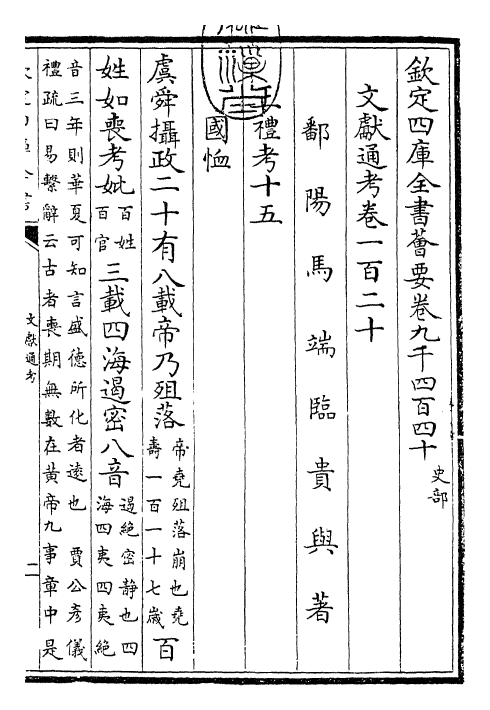 欽定四庫全書薈要卷九千四百四十 史部
文獻通考卷一百二十
鄱陽馬端臨貴與著
王禮考十五
國恤
虞舜攝政二十有八載帝乃殂落 帝堯殂落崩也堯壽一百一十七歲 百
姓如喪考妣 百姓百官 三載四海遏密八音 遏絶密静也四海四夷四夷絶
音三年則華夏可知言盛德所化者遠也 賈公彦儀
禮疏曰易繫辭云古者喪期無數在黄帝九事章中是
文獻通考